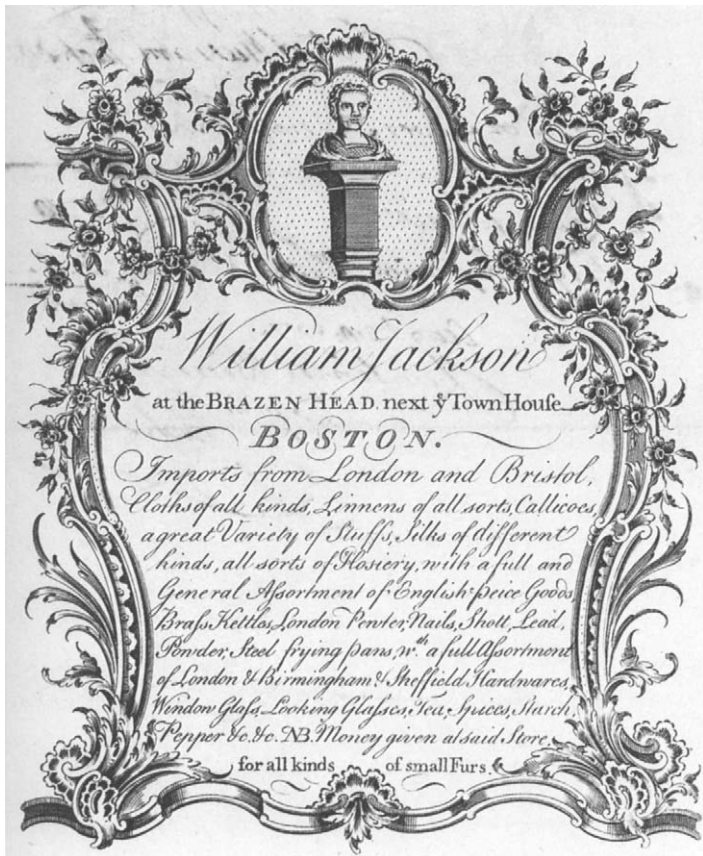 William Jackson
at the BRAZEN HEAD. next yͤ Town Houſe
BOSTON.
Imports from London and Bristol,
Cloths of all kinds, Linnens of all sorts, Callicoes,
a great Variety of Stuffs, Silks of different
kinds, all sorts of Hosiery, with a full and
General Aſsortment of English peice Goods
Braſs Kettles, London Pewter, Nails, Shott, Lead,
Powder, Steel frying pans, wth. a full Aſsortment
of London & Birmingham & Sheffield Hardwares,
Window Glaſs, Looking Glaſses, Tea, Spices, Starch,
Pepper &c. &c. NB. Money given at said Store
for all kinds of small Furs.